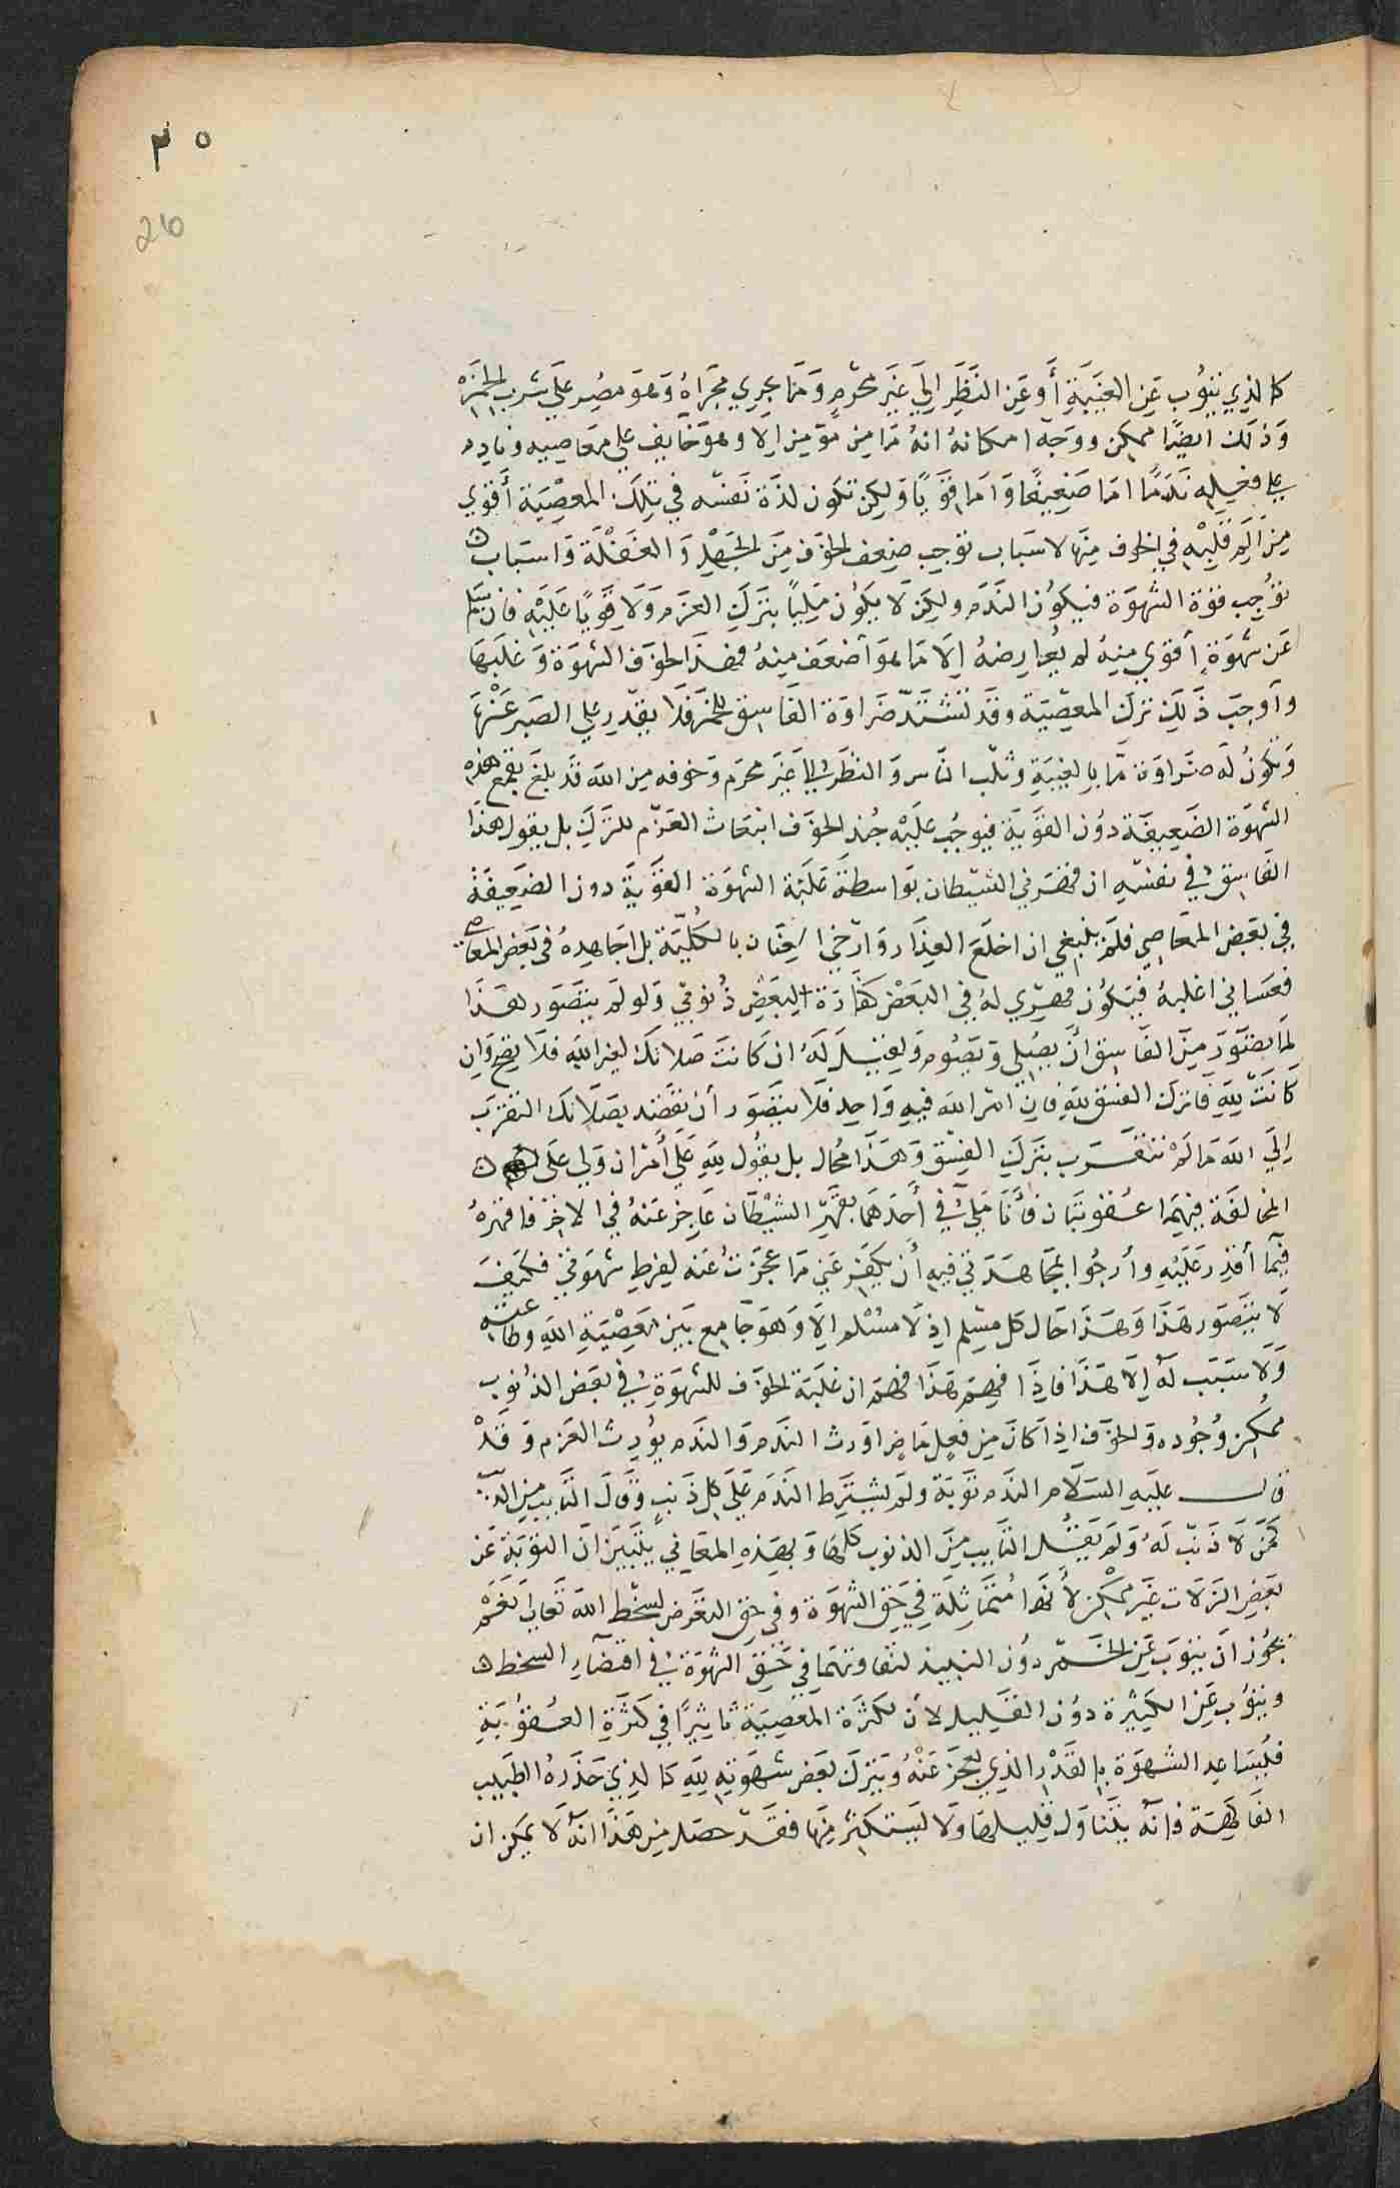 ٣٥
26
كالذي يتوب عن الغيبة أو عن النظر الي غير محرم وما يجري مجراه وهو مصر علي شرب الخمر
وذلك ايضا ممكن ووجه امكانه انه ما من مؤمن الا وهو خايف علي معاصيه ونادم
علي فعله ندما اما ضعيفا واما قويا ولكن تكون لذة نفسه في تلك المعصية أقوي
من الم قلبه في الخوف منها لاسباب توجب ضعف الخوف من الجهل والغفلة واسباب
توجب قوة الشهوة فيكون الندم ولكن لا يكون مليا بترك العزم ولا قويا عليه فان سلم
عن شهوة أقوي منه لم يعارضه إلا ما هو أضعف منه قهر الخوف الشهوة وغلبها
وأوجب ذلك ترك المعصية وقد تشتد ضراوة الفاسق بالخمر فلا يقدر علي الصبر عنها
وتكون له ضراوة ما بالغيبة وثلب الناس والنظر الي غير محرم وخوفه من الله قد بلغ بقمع هذه
الشهوة الضعيفة دون القوية فيوجب عليه جند الخوف انبعاث العزم للترك بل يقول هذا
الفاسق في نفسه ان قهرني الشيطان بواسطة غلبة الشهوة القوية دون الضعيفة
في بعض المعاصي فلم ينبغي ان اخلع العذار وارخي العنان بالكلية بل اجاهده في بعض المعاصي
فعساني اغلبه فيكون قهري له في البعض كفارة لبعض ذنوبي ولو لم يتصور هذا
لما يصور من الفاسق أن يصلي ويصوم ولقيل له ان كانت صلاتك لغير الله فلا يصح وان
كانت لله فاترك الفسق لله فان امر الله فيه واحد فلا يتصور أن تقصد بصلاتك التقرب
إلي الله ما لم تتقرب بترك الفسق وهذا محال بل يقول لله علي أمران ولي علي
المخالفة فيهما عقوبتان وأنا ملي في أحدهما بقهر الشيطان عاجز عنه في الاخر فاقهره
فيما أقدر عليه وأرجوا بمجاهدتي فيه أن يكفر عني ما عجزت عنه لفرط شهوتي فكيف
لا يتصور هذا وهذا حال كل مسلم اذ لا مسلم الا وهو جامع بين معصية الله وطاعته
ولا سبب له إلا هذا فاذا فهم هذا فهم ان غلبة الخوف للشهوة في بعض الذنوب
ممكن وجوده والخوف اذا كان من فعل ماض اورث الندم والندم يورث العزم وقد
قال عليه السلام الندم توبة ولم يشترط الندم علي كل ذنب وقال التايب من الذنب
كمن لا ذنب له ولم يقل التايب من الذنوب كلها وبهذه المعاني يتبين ان التوبة عن
بعض الزلات غير ممكن لأنها متماثلة في حق الشهوة وفي حق التعرض لسخط الله تعالي نعم
يجوز ان يتوب عن الخمر دون النبيذ لتفاوتهما في حق الشهوة في اقتضاء السخط
ويتوب عن الكثيرة دون القليل لأن لكثرة المعصية تاثيرا في كثرة العقوبة
فليساعد الشهوة بالقدر الذي يعجز عنه ويترك بعض شهوته لله كالذي حذره الطبيب
الفاكهة فانه يتناول قليلها ولا يستكثر منها فقد حصل من هذا انه لا يمكن ان